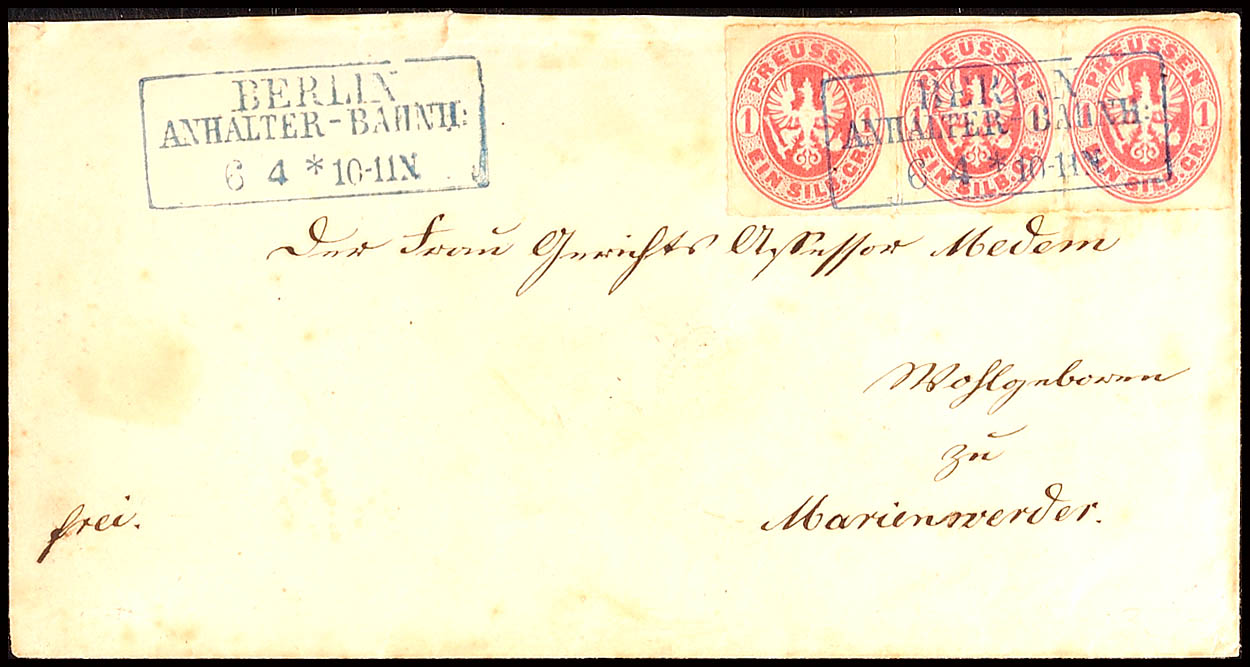 BERLIN
ANHALTER-BAHNH:
6 4 * 10-11N
PREUSSEN
1 1
EIN SILB.GR.
PREUSSEN
1 1
EIN SILB.GR.
PREUSSEN
1 1
EIN SILB.GR.
BERLIN
ANHALTER-BAHNH:
6 4 * 10-11N
Der Frau Gerichts Assessor Medem
Wohlgeboren
zu
Marienwerder.
frei.